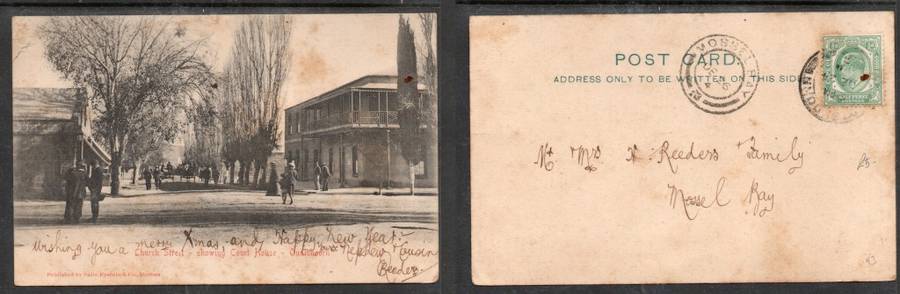 Wishing you a merry Xmas and Happy New Year.
Church Street - showing Court House - Oudtshoorn
Nephew Cousin
Reeder
Published by
POST CARD.
ADDRESS ONLY TO BE WRITTEN ON THIS SIDE
MOSSEL BAY
Mr Mrs N. Reeders + Family
Mossel Bay
R5-